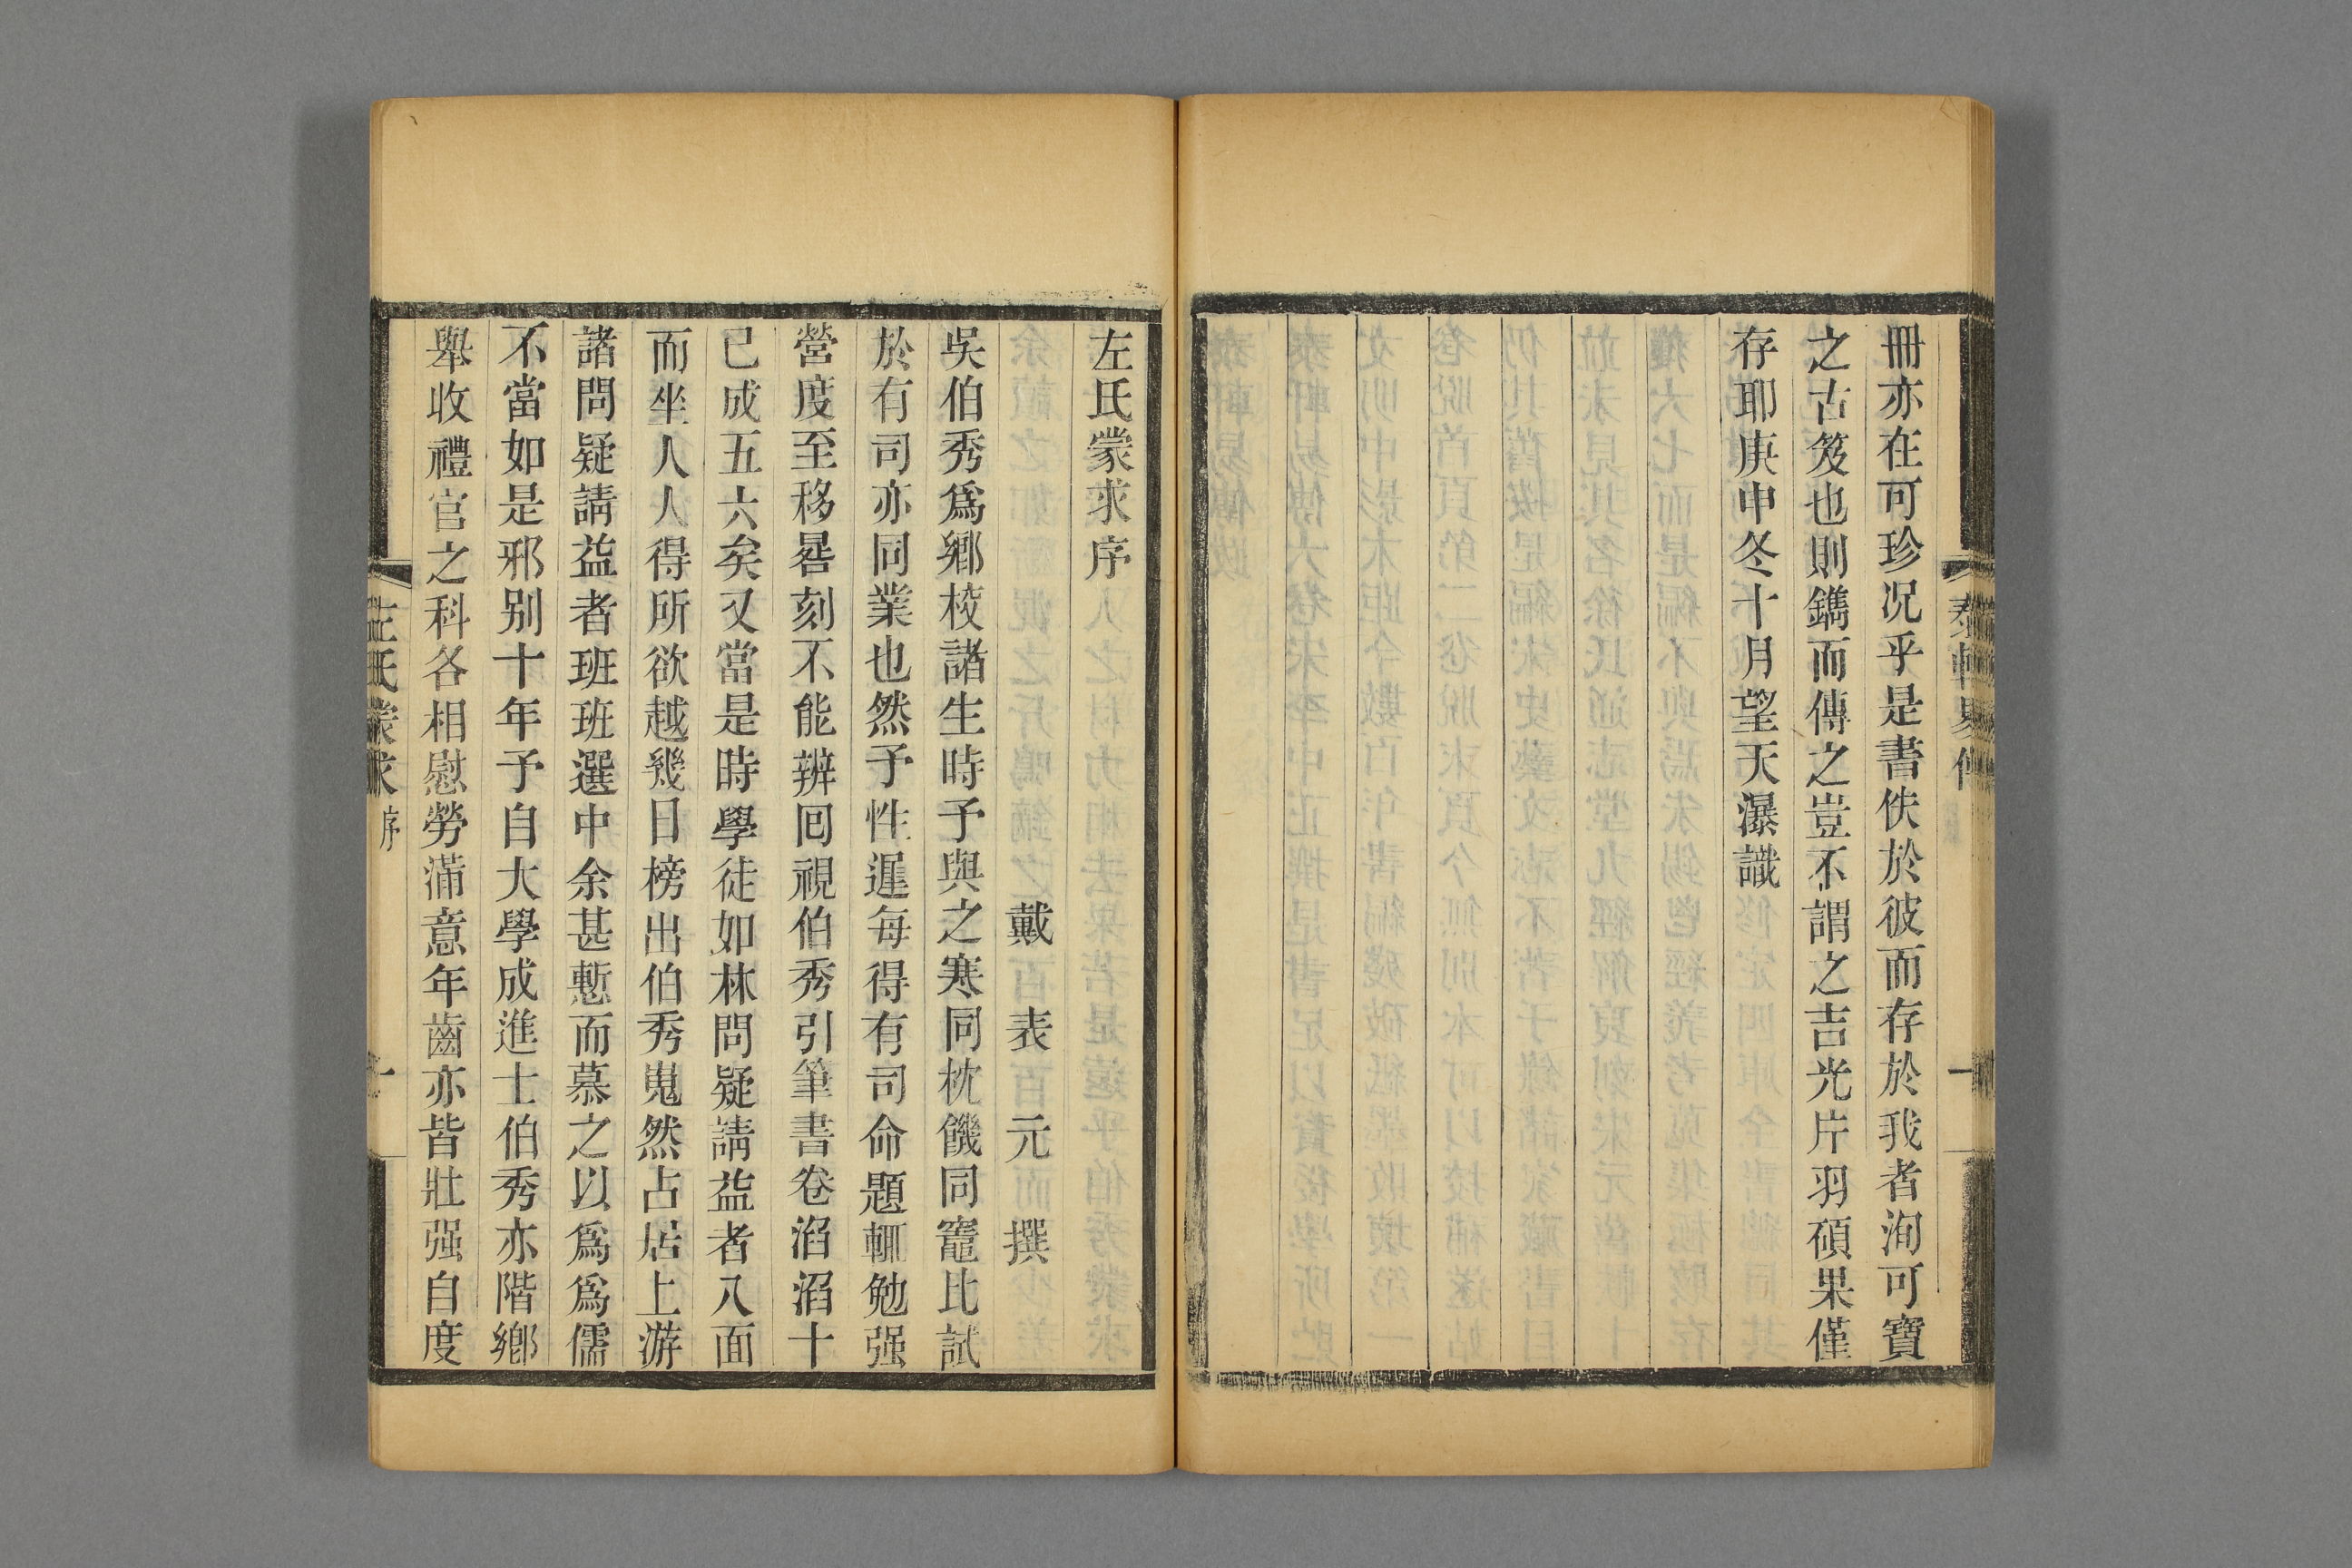 冊亦在可珍况乎是書佚於彼而存於我者洵可寶
之古笈也則鐫而傳之豈不謂之吉光片羽碩果僅
存耶庚申冬十月望天瀑識
左氏蒙求序
戴表元撰
吳伯秀爲鄉校諸生時予與之寒同枕饑同竈比試
於有司亦同業也然予性遲每得有司命題輒勉强
營度至移晷刻不能辨囘視伯秀引筆書卷滔滔十
已成五六矣又當是時學徒如林問疑請益者八面
而坐人人得所欲越幾日榜出伯秀嵬然占居上游
諸問疑請益者班班選中余甚慙而慕之以爲爲儒
不當如是邪别十年予自大學成進士伯秀亦階鄉
舉收禮官之科各相慰勞滿意年齒亦皆壯强自度
左氏蒙求 序 一